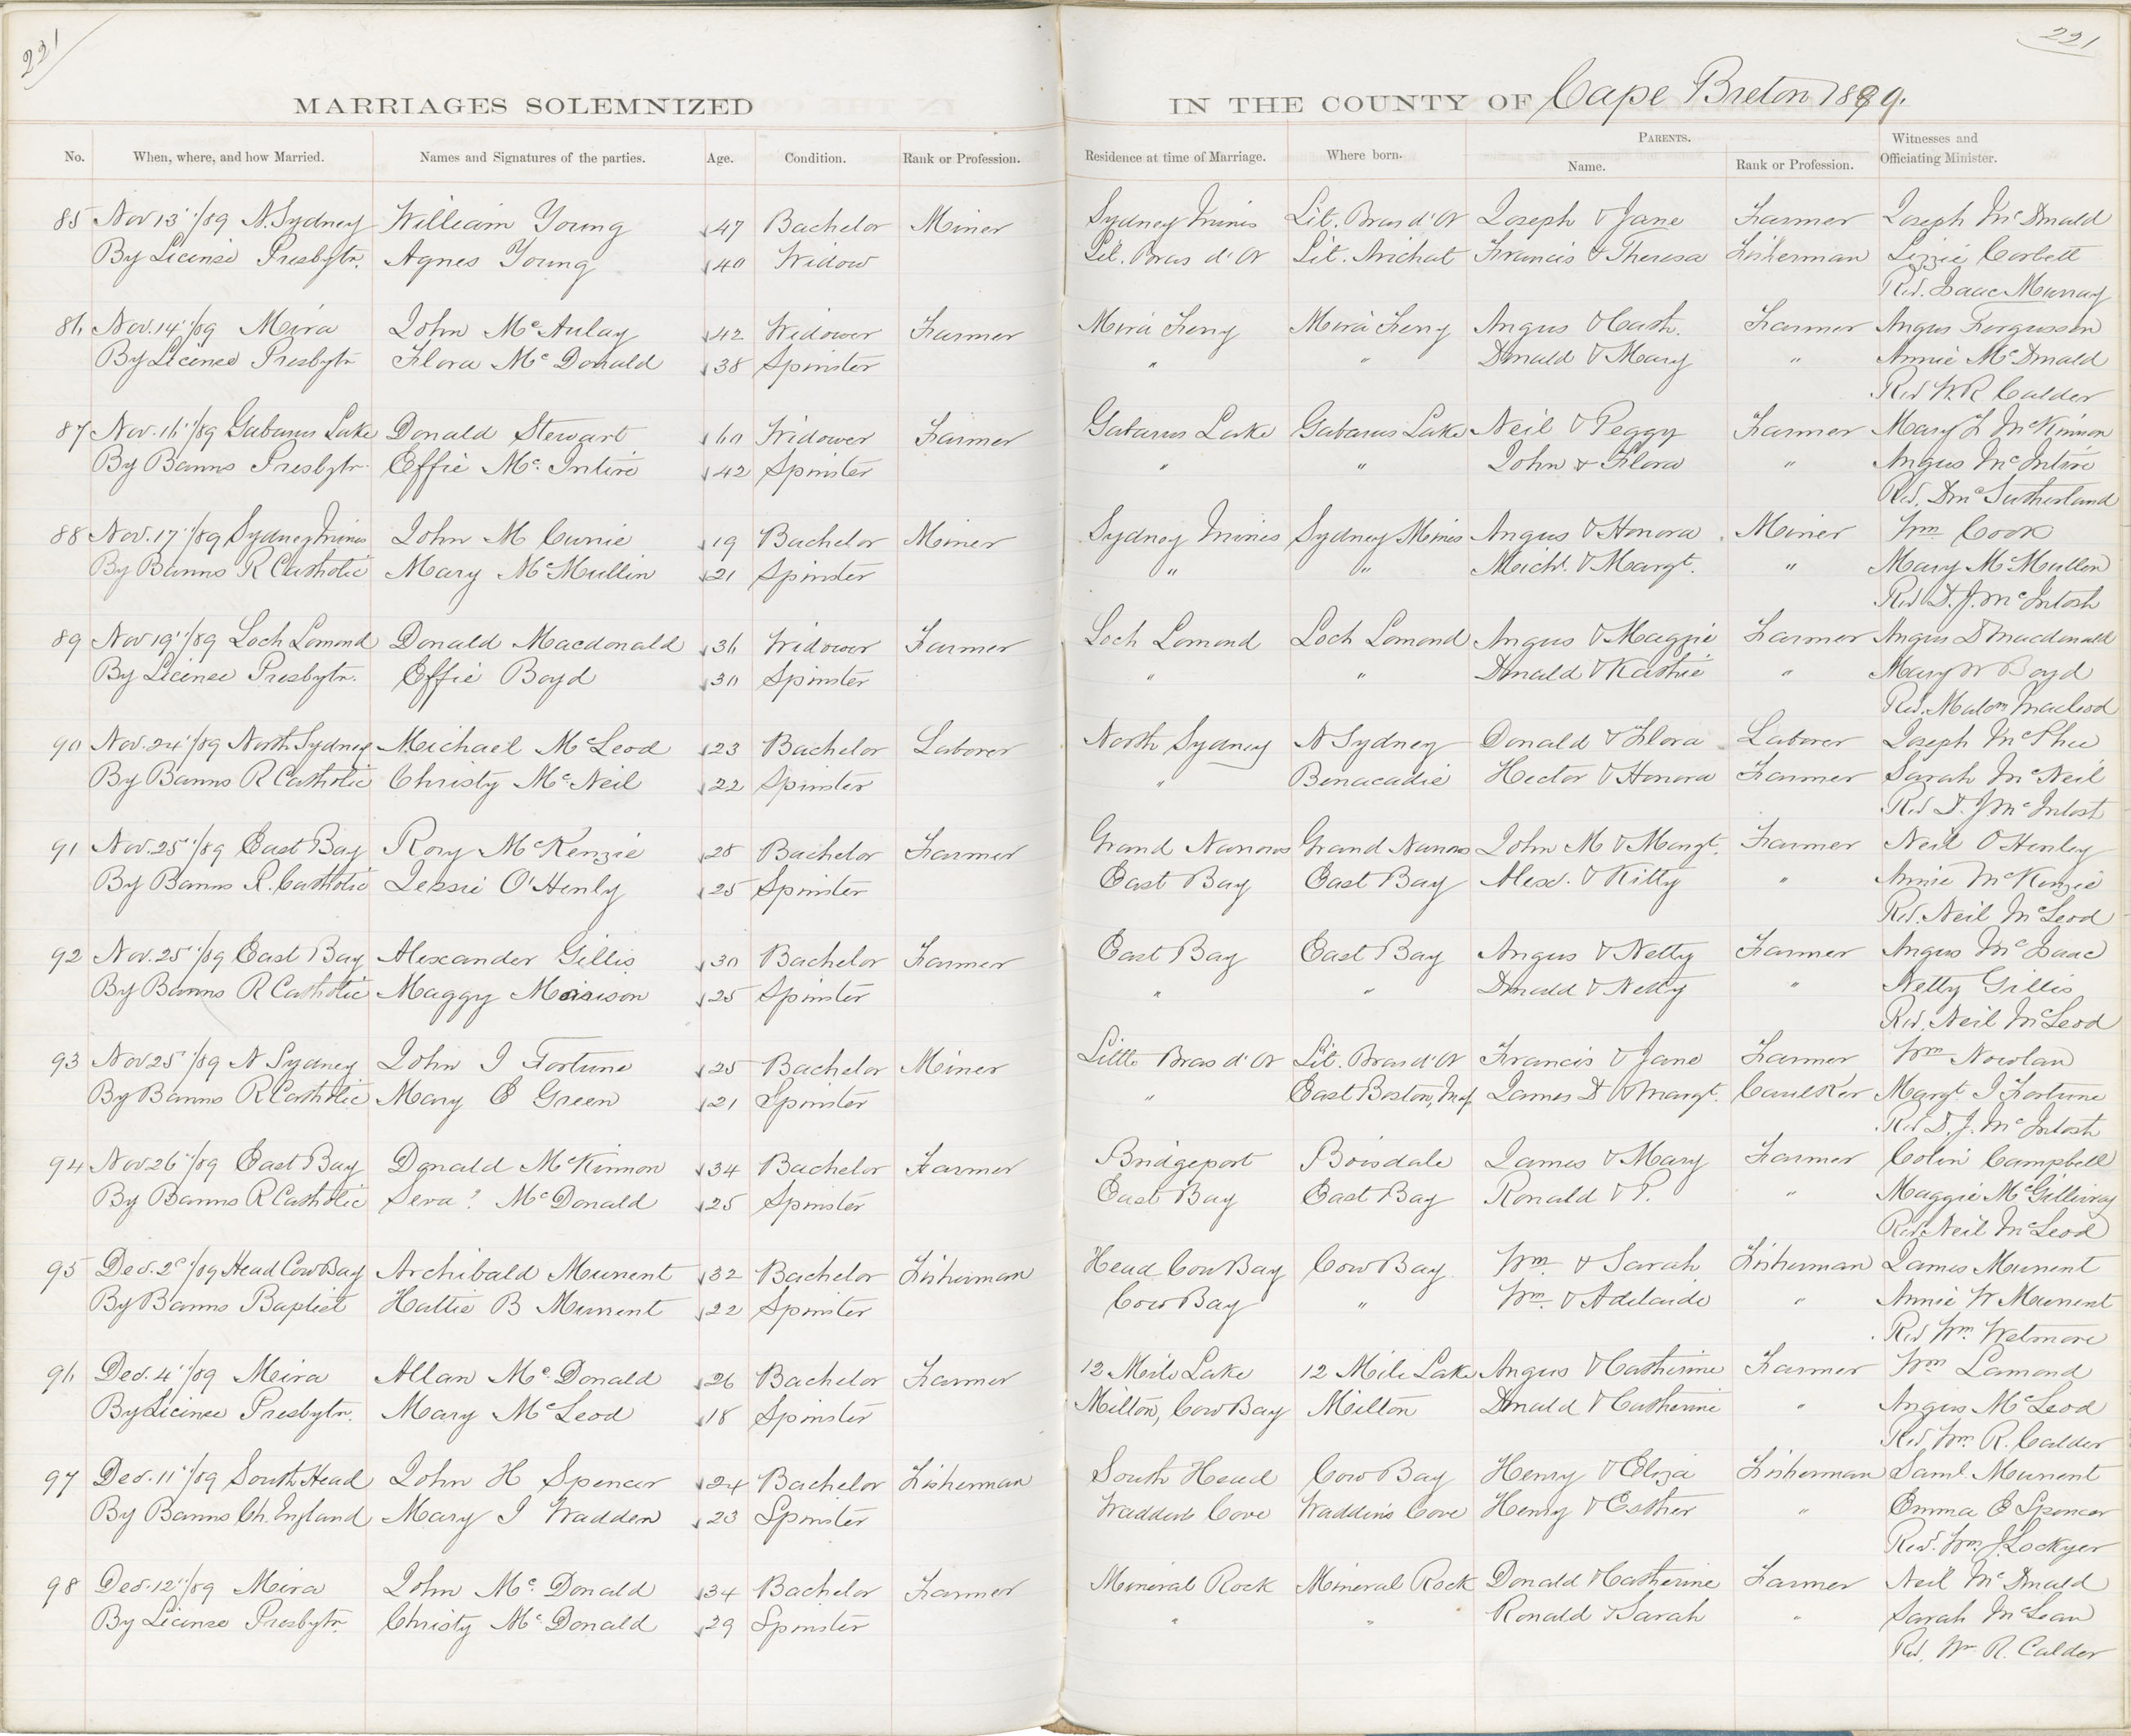 221
221
MARRIAGES SOLEMNIZED
IN THE COUNTY OF Cape Breton 1889.
No. When, where, and how Married. Names and Signatures of the parties. Age. Condition. Rank or Profession. Residence at time of Marriage. Where born. PARENTS. Name. Rank or Profession. Witnesses and Officiating Minister.
85 Nov 13"/89 N. Sydney William Young 47 Bachelor Miner Sydney Mines Lit. Bras d'Or Joseph & Jane Farmer Joseph McDonald
By License Presbytr. Agnes Young 40 Widow Lit. Bras d'Or Lit. Arichat Francis & Theresa Fisherman Lizzie Corbett
Rev. Isaac Murray
86 Nov. 14"/89 Mira John McAulay 42 Widower Farmer Mira Ferry Mira Ferry Angus & Cath. Farmer Angus Fergusson
By License Presbytr Flora McDonald 38 Spinster " " Donald & Mary " Annie McDonald
Rev W. R. Calder
87 Nov. 16"/89 Gabarus Lake Donald Stewart 60 Widower Farmer Gabarus Lake Gabarus Lake Neil & Peggy Farmer Mary J McKinnon
By Banns Presbytr. Effie McIntire 42 Spinster " " John & Flora " Angus McIntire
Rev. D Mc Sutherland
88 Nov. 17"/89 Sydney Mines John M Currie 19 Bachelor Miner Sydney Mines Sydney Mines Angus & Honora Miner Wm Cook
By Banns R Catholic Mary McMullin 21 Spinster " " Michl. & Margt. " Mary McMullen
Rev D. J. McIntosh
89 Nov 19"/89 Loch Lomond Donald Macdonald 36 Widower Farmer Loch Lomond Loch Lomond Angus & Maggie Farmer Angus D Macdonald
By License Presbytr. Effie Boyd 30 Spinster " " Donald & Kathie " Mary W Boyd
Rev. Malcm Macleod
90 Nov. 24"/89 North Sydney Michael McLeod 23 Bachelor Laborer North Sydney N Sydney Donald & Flora Laborer Joseph McPhee
By Banns R Catholic Christy McNeil 22 Spinster " Benacadie Hector & Honora Farmer Sarah McNeil
Rev D. J McIntosh
91 Nov. 25"/89 East Bay Rory McKenzie 28 Bachelor Farmer Grand Narrows Grand Narrows John M & Margt. Farmer Neil O'Henley
By Banns R. Catholic Jessie O'Henly 25 Spinster East Bay East Bay Alex. & Kitty " Annie McKenzie
Rev. Neil McLeod
92 Nov. 25"/89 East Bay Alexander Gillis 30 Bachelor Farmer East Bay East Bay Angus & Netty Farmer Angus McIsaac
By Banns R Catholic Maggy Morison 25 Spinster " " Donald & Netty " Netty Gillis
Rev. Neil McLeod
93 Nov 25"/89 N Sydney John J Fortune 25 Bachelor Miner Little Bras d'Or Lit. Bras d'Or Francis & Jane Farmer Wm Nowlan
By Banns R Catholic Mary E Green 21 Spinster " East Boston, Mas James D & Margt. Caulker Margt J Fortune
Rev D. J. McIntosh
94 Nov 26"/89 East Bay Donald McKinnon 34 Bachelor Farmer Bridgeport Boisdale James & Mary Farmer Colin Campbell
By Banns R Catholic Seva? McDonald 25 Spinster East Bay East Bay Ronald & P. " Maggie McGillivray
Rev. Neil McLeod
95 Dec. 2"/89 Head Cow Bay Archibald Munent 32 Bachelor Fisherman Head Cow Bay Cow Bay Wm. & Sarah Fisherman James Munent
By Banns Baptist Hattie B Munent 22 Spinster Cow Bay " Wm. & Adelaide " Annie W Munent
Rev Wm. Wetmore
96 Dec. 4"/89 Mira Allan McDonald 26 Bachelor Farmer 12 Mile Lake 12 Mile Lake Angus & Catherine Farmer Wm Lamond
By License Presbytr. Mary McLeod 18 Spinster Milton, Cow Bay Milton Donald & Catherine " Angus McLeod
Rev. Wm. R. Calder
97 Dec. 11"/89 South Head John H Spencer 24 Bachelor Fisherman South Head Cow Bay Henry & Eliza Fisherman Saml. Munent
By Banns Ch. England Mary J Wadden 23 Spinster Waddens Cove Waddins Cove Henry & Esther " Emma E Spencer
Rev. Wm. J. Lockyer
98 Dec. 12"/89 Mira John McDonald 34 Bachelor Farmer Mineral Rock Mineral Rock Donald & Catherine Farmer Neil McDonald
By License Presbytr. Christy McDonald 29 Spinster " " Ronald & Sarah " Sarah McLean
Rev. Wm R. Calder